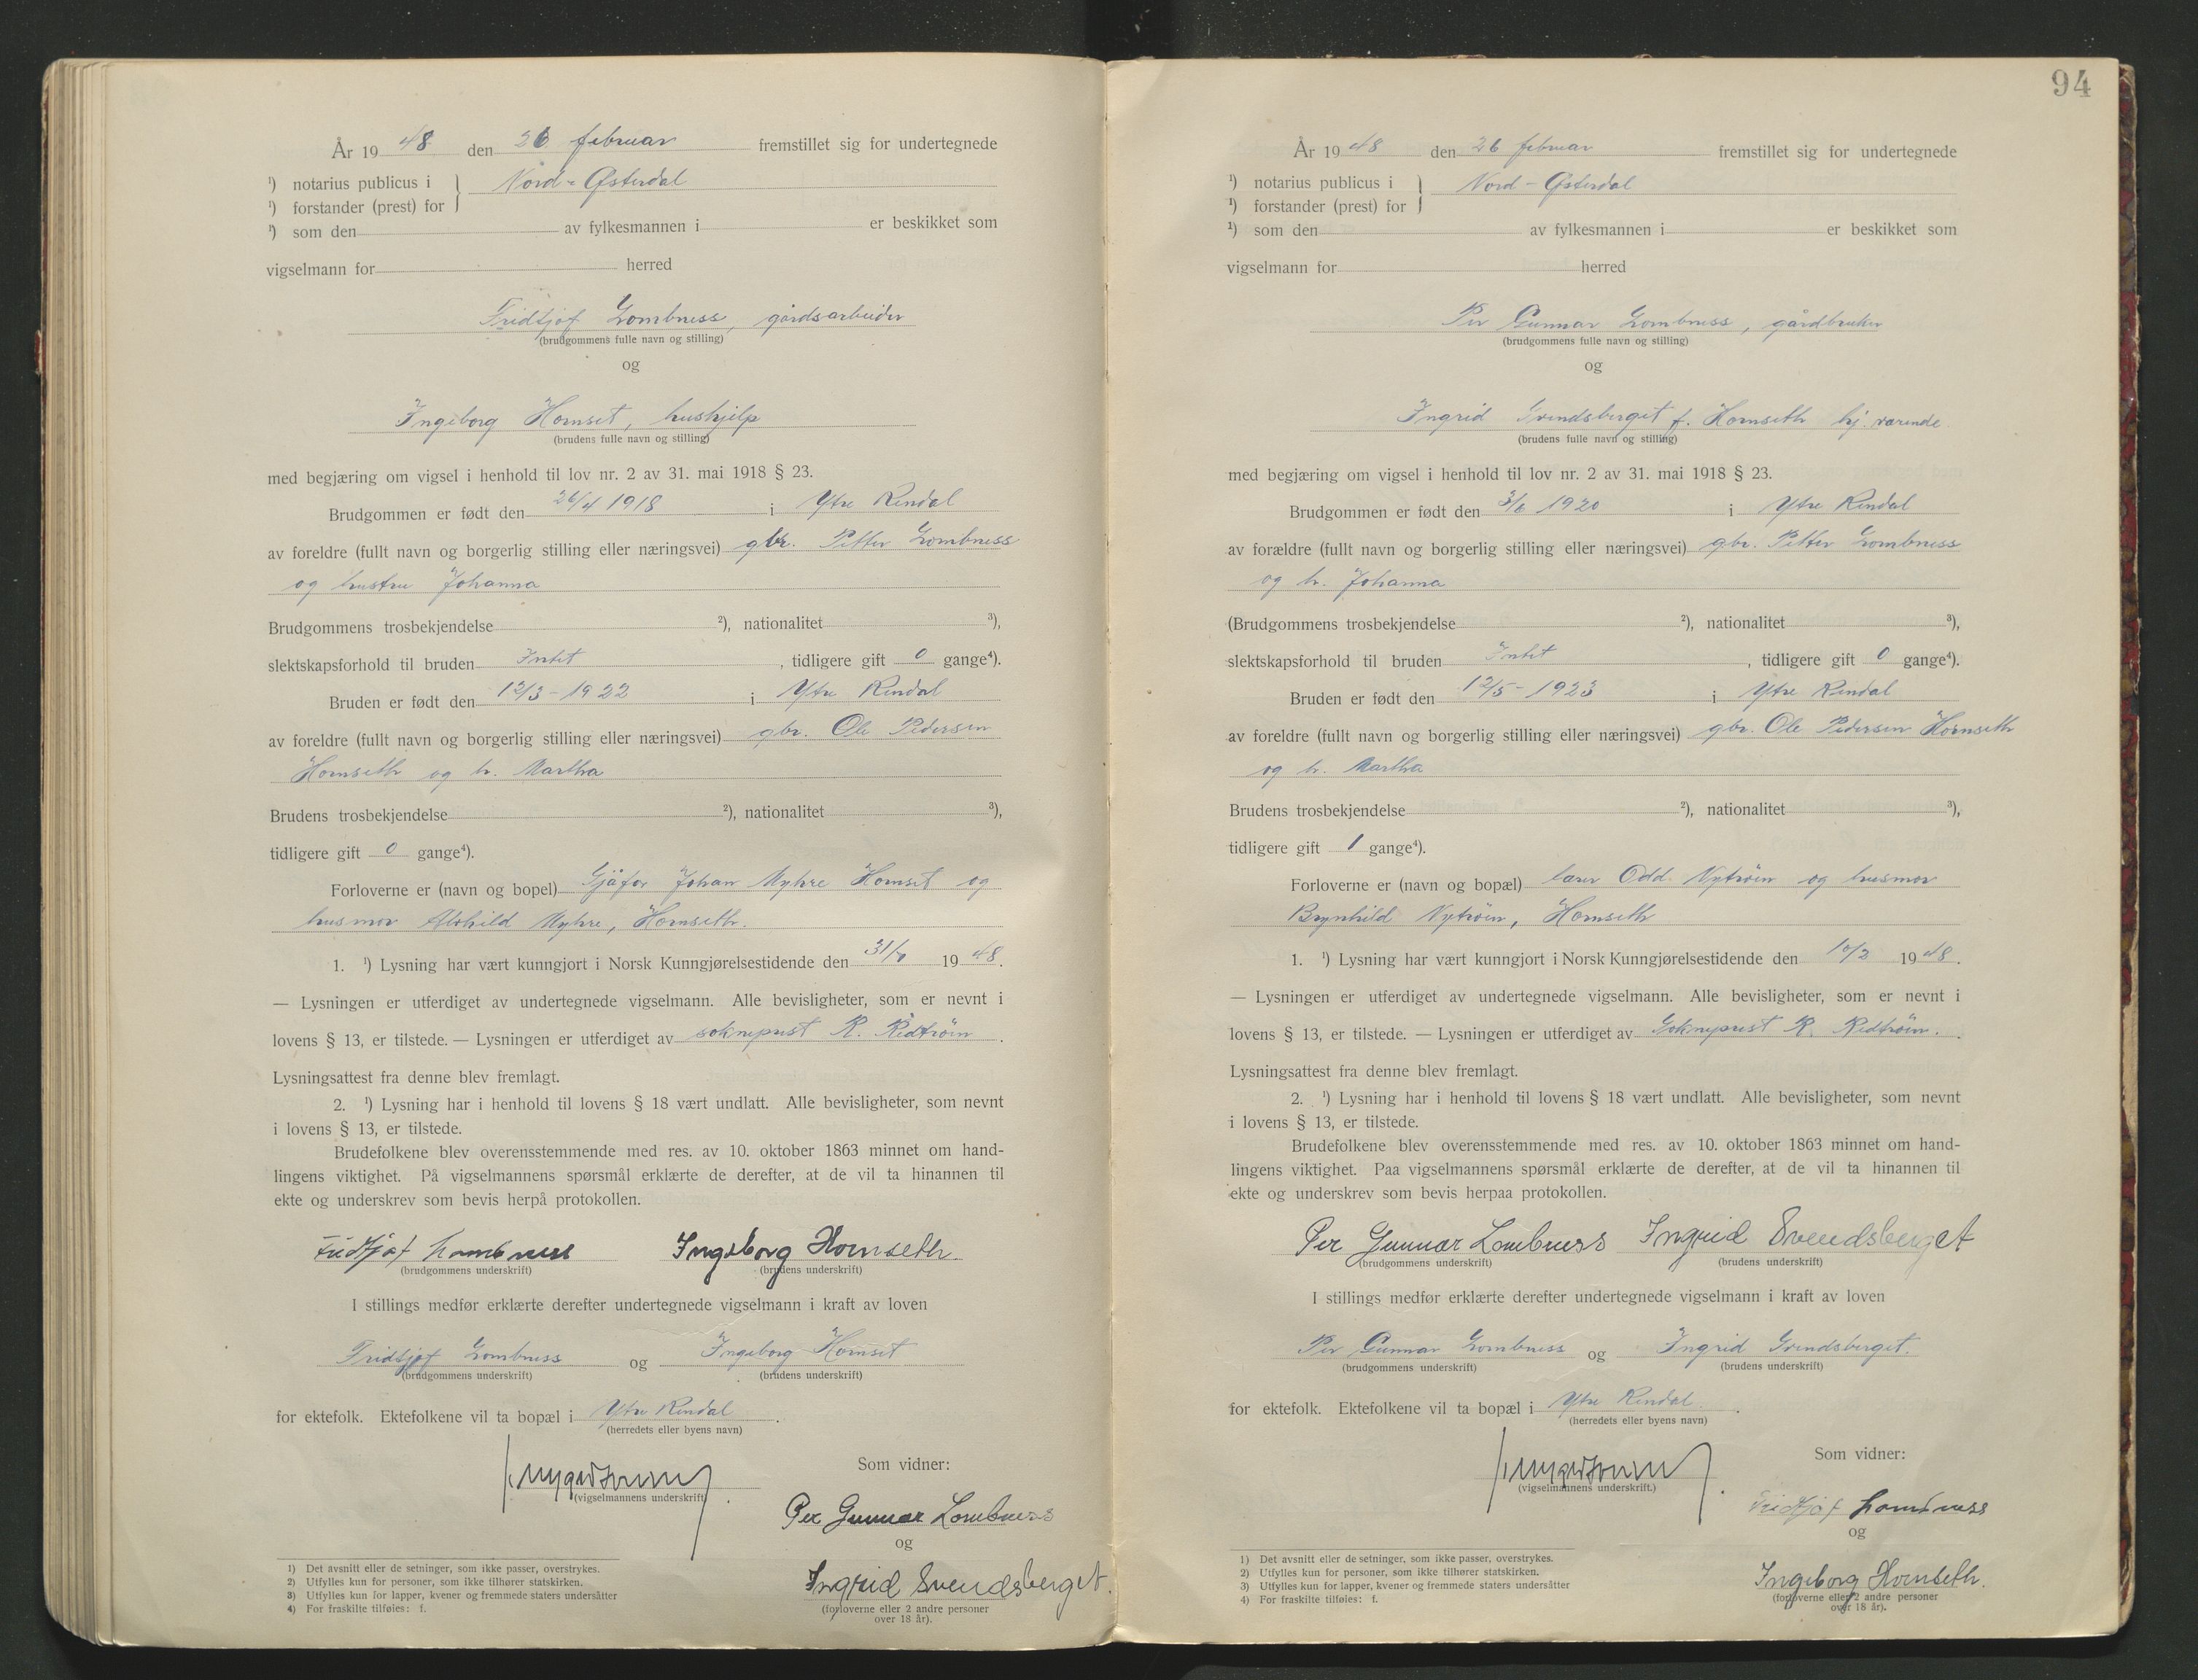 År 1948 den 26 februar fremstillet sig for undertegnede
¹) notarius publicus i } Nord-Østerdal
¹) forstander (prest) for
¹) som den av fylkesmannen i er beskikket som
vigselmann for herred
Fridtjof Lombness, gårdsarbeider
(brudgommens fulle navn og stilling)
og
Ingeborg Hornset, hushjelp
(brudens fulle navn og stilling)
med begjæring om vigsel i henhold til lov nr. 2 av 31. mai 1918 § 23.
Brudgommen er født den 26/4 1918 i Ytre Rendal
av foreldre (fullt navn og borgerlig stilling eller næringsvei) gbr. Petter Lombness
og hustru Johanna
Brudgommens trosbekjendelse ²), nationalitet ³),
slektskapsforhold til bruden Intet, tidligere gift 0 gange⁴).
Bruden er født den 12/3-1922 i Ytre Rendal
av foreldre (fullt navn og borgerlig stilling eller næringsvei) gbr. Ole Pedersen
Hornseth og h. Martha
Brudens trosbekjendelse ²), nationalitet ³),
tidligere gift 0 gange⁴).
Forloverne er (navn og bopel) Johan Myhre Hornset og
husmor Myhre, Hornseth.
1. ¹) Lysning har vært kunngjort i Norsk Kunngjørelsestidende den 1948.
— Lysningen er utferdiget av undertegnede vigselmann. Alle bevisligheter, som er nevnt i
lovens § 13, er tilstede. — Lysningen er utferdiget av sokneprest R. Rødtrøen.
Lysningsattest fra denne blev fremlagt.
2. ¹) Lysning har i henhold til lovens § 18 vært undlatt. Alle bevisligheter, som nevnt
i lovens § 13, er tilstede.
Brudefolkene blev overensstemmende med res. av 10. oktober 1863 minnet om hand-
lingens viktighet. På vigselmannens spørsmål erklærte de derefter, at de vil ta hinannen til
ekte og underskrev som bevis herpå protokollen.
Fridtjof Lombness Ingeborg Hornseth
(brudgommens underskrift) (brudens underskrift)
I stillings medfør erklærte derefter undertegnede vigselmann i kraft av loven
Fridtjof Lombness og Ingeborg Hornset
(brudgommens underskrift) (brudens underskrift)
for ektefolk. Ektefolkene vil ta bopæl i Ytre Rendal.
(herredets eller byens navn)
Som vidner:
(vigselmannens underskrift)
Per Gunnar Lombness
og
Ingrid Svendsberget.
(forloverne eller 2 andre personer
over 18 år).
1) Det avsnitt eller de setninger, som ikke passer, overstrykes.
2) Utfylles kun for personer, som ikke tilhører statskirken.
3) Utfylles kun for lapper, kvener og fremmede staters undersåtter
4) For fraskilte tilføies: f.
94
År 1948 den 26 februar fremstillet sig for undertegnede
¹) notarius publicus i } Nord-Østerdal
¹) forstander (prest) for
¹) som den av fylkesmannen i er beskikket som
vigselmann for herred
Per Gunnar Lombness, gårdbruker
(brudgommens fulle navn og stilling)
og
Ingrid Svendsberget f. Hornseth hj. værende
(brudens fulle navn og stilling)
med begjæring om vigsel i henhold til lov nr. 2 av 31. mai 1918 § 23.
Brudgommen er født den 3/6 1920 i Ytre Rendal
av forældre (fullt navn og borgerlig stilling eller næringsvei) gbr. Petter Lombness
og h. Johanna
(Brudgommens trosbekjendelse ²), nationalitet ³),
slektskapsforhold til bruden Intet, tidligere gift 0 gange⁴).
Bruden er født den 12/5-1923 i Ytre Rendal
av foreldre (fullt navn og borgerlig stilling eller næringsvei) gbr. Ole Pedersen Hornseth
og h. Martha
Brudens trosbekjendelse ²), nationalitet ³),
tidligere gift 1 gange⁴).
Forloverne er (navn og bopæl) lærer Odd Nytrøen og husmor
Brynhild Nytrøen, Hornseth
1. ¹) Lysning har vært kunngjort i Norsk Kunngjørelsestidende den 10/2 1948.
— Lysningen er utferdiget av undertegnede vigselmann. Alle bevisligheter, som er nevnt i
lovens § 13, er tilstede. — Lysningen er utferdiget av Sokneprest R. Rødtrøen.
Lysningsattest fra denne blev fremlagt.
2. ¹) Lysning har i henhold til lovens § 18 vært undlatt. Alle bevisligheter, som nevnt
i lovens § 13, er tilstede.
Brudefolkene blev overensstemmende med res. av 10. oktober 1863 minnet om hand-
lingens viktighet. Paa vigselmannens spørsmål erklærte de derefter, at de vil ta hinannen til
ekte og underskrev som bevis herpaa protokollen.
Per Gunnar Lombness Ingrid Svendsberget
(brudgommens underskrift) (brudens underskrift)
I stillings medfør erklærte derefter undertegnede vigselmann i kraft av loven
Per Gunnar Lombness og Ingrid Svendsberget.
(brudgommens underskrift) (brudens underskrift)
for ektefolk. Ektefolkene vil ta bopæl i Ytre Rendal.
(herredets eller byens navn)
Som vidner:
(vigselmannens underskrift.)
Fridtjof Lombness
og
Ingeborg Hornseth.
(forloverne eller 2 andre personer
over 18 år).
1) Det avsnitt eller de setninger, som ikke passer, overstrykes.
2) Utfylles kun for personer, som ikke tilhører statskirken.
3) Utfylles kun for lapper, kvener og fremmede staters undersåtter
4) For fraskilte tilføies: f.